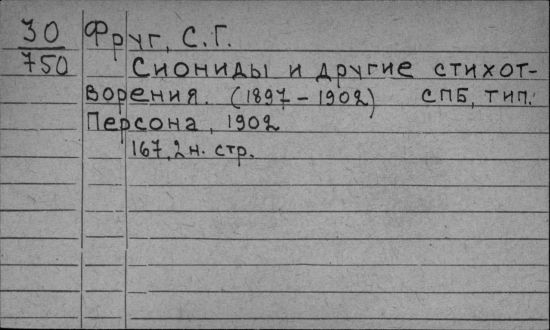 30
750
Фруг, С.Г.
Сиониды и другие стихот-
ворения. (1897-1902) СПБ, тип.
Персона, 1902
167, 2 н. стр.